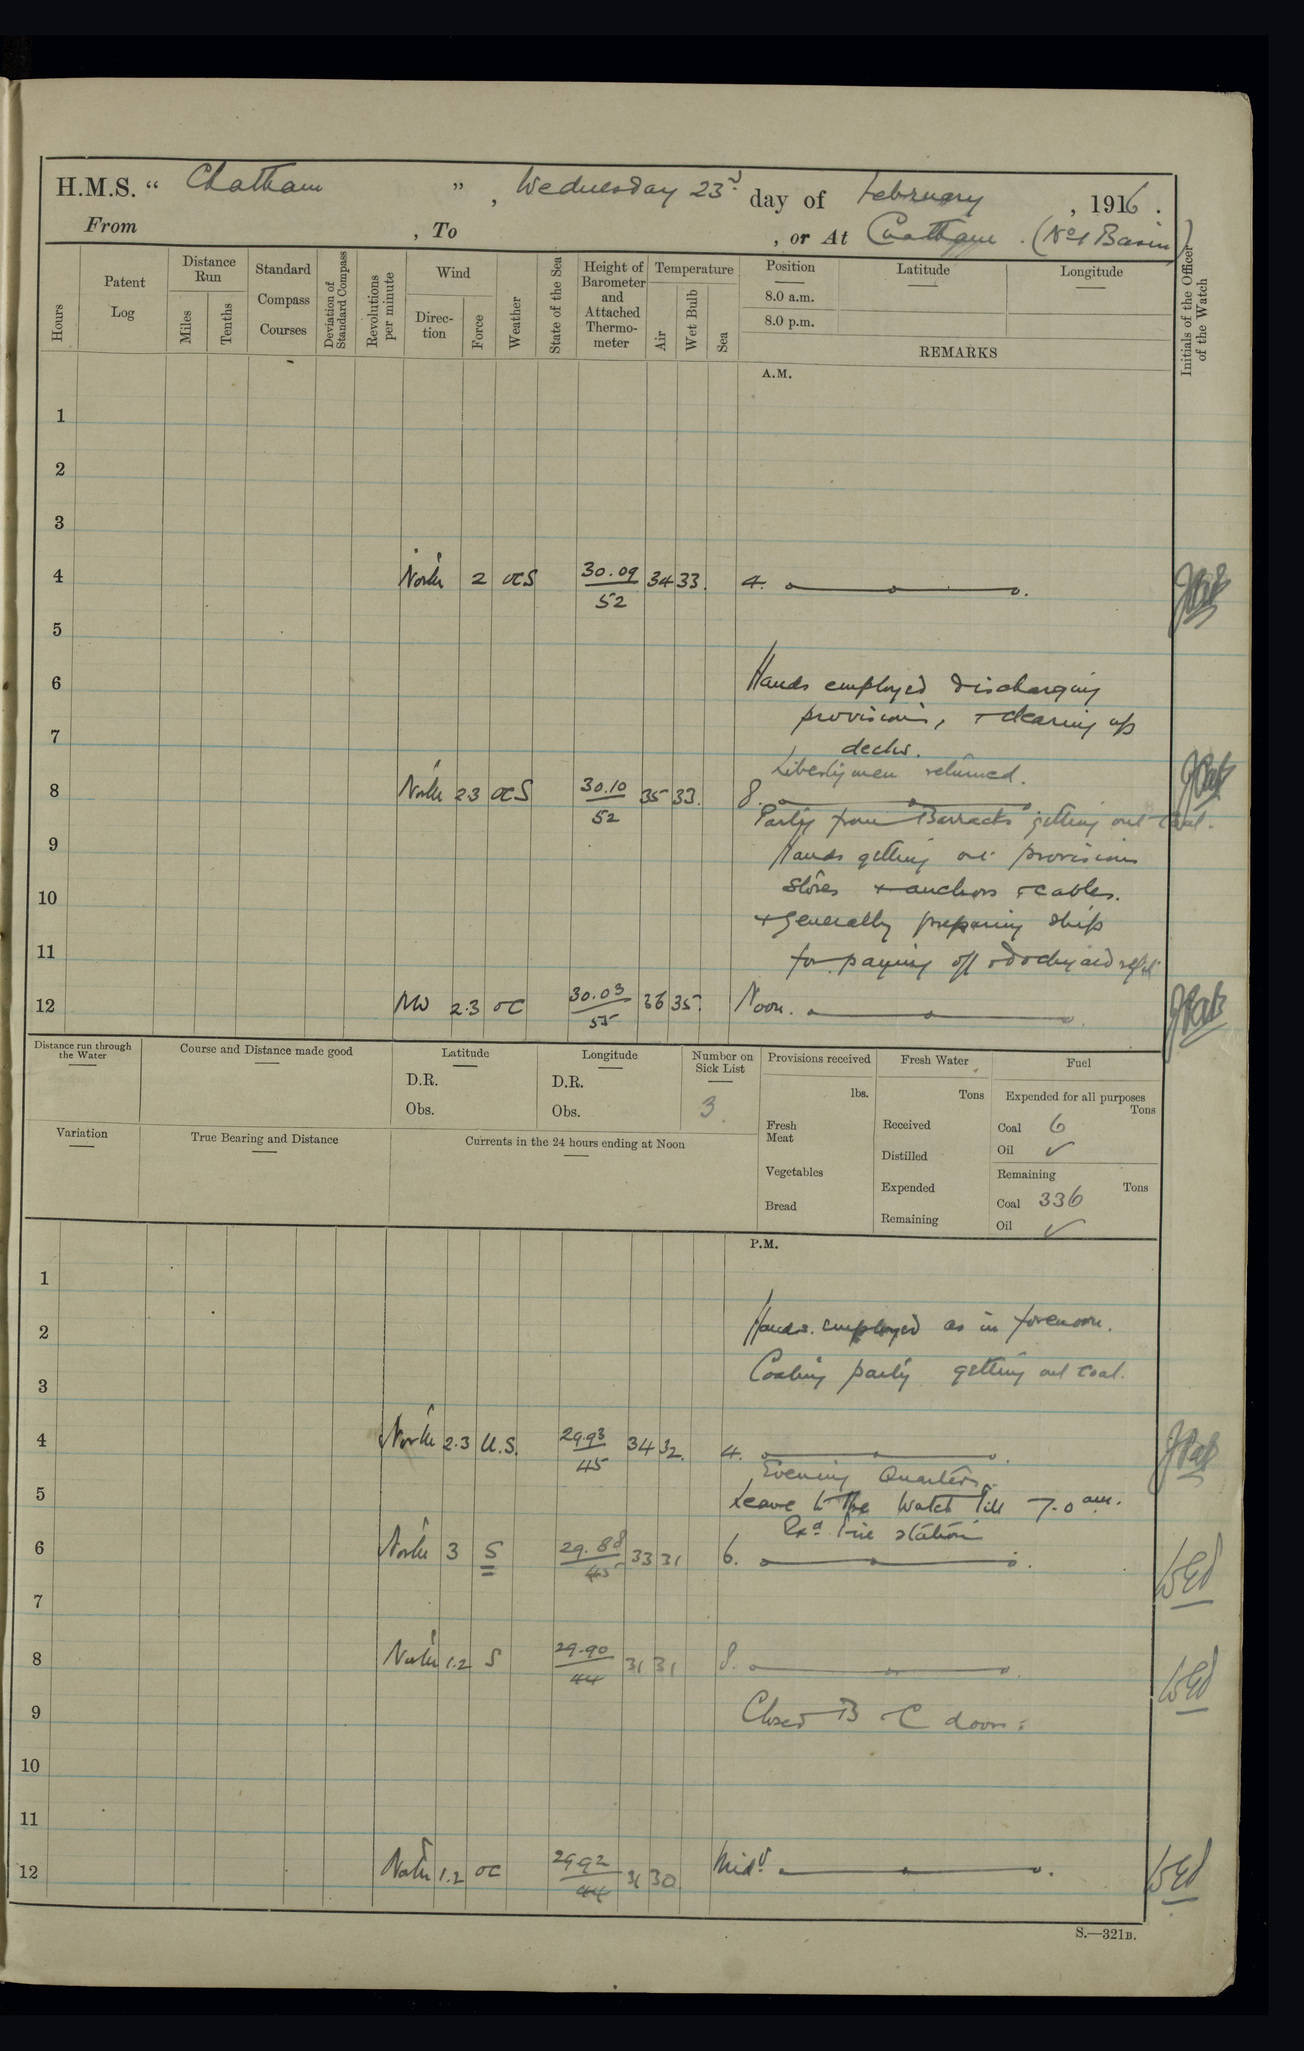 H.M.S. “ Chatham ”, Wednesday 23rd day of February, 1916.
From , To , or At Chatham. (No 1 Basin)
Hours
Patent Log
Distance Run
Miles
Tenths
Standard Compass Courses
Deviation of Standard Compass
Revolutions per minute
Wind
Direction
Force
Weather
State of the Sea
Height of Barometer and Attached Thermometer
Temperature
Air
Wet Bulb
Sea
Position
8.0 a.m.
8.0 p.m.
Latitude
Longitude
REMARKS
Initials of the Officer of the Watch
A.M.
1
2
3
4 North 2 ocS 30.09 52 34 33. 4.
5
6 Hands employed discharging
provisions, + clearing up
7 decks.
Liberty men returned.
8 North 2.3 ocS 30.10 52 35 33. 8.
Party from Barracks getting out coal.
9 Hands getting out provisions
stores + anchors + cables.
10
+ generally preparing ship
11 for paying off + dockyard refit
12 NW 2.3 oc 30.03 55 36 35. Noon.
Distance run through the Water
Course and Distance made good
Latitude
D.R.
Obs.
Longitude
D.R.
Obs.
Number on Sick List
3
Provisions received
lbs.
Fresh Meat
Vegetables
Bread
Fresh Water
Tons
Received
Distilled
Expended
Remaining
Fuel
Expended for all purposes
Tons
Coal 6
Oil ✓
Remaining
Tons
Coal 336
Oil ✓
Variation
True Bearing and Distance
Currents in the 24 hours ending at Noon
P.M.
1
2 Hands employed as in forenoon.
3 Coaling party getting out coal.
4 North 2.3 U.S. 29.93 45 34 32. 4.
Evening Quarters.
5 Leave to the Watch till 7.0 am.
Exd fire station
6 North 3 S 29.88 45 33 31 6.
7
8 North 1.2 S 29.90 44 31 31 8.
9 Closed B + C doors.
10
11
12 North 1.2 oc 29.92 44 31 30 Midt.
S.—321B.